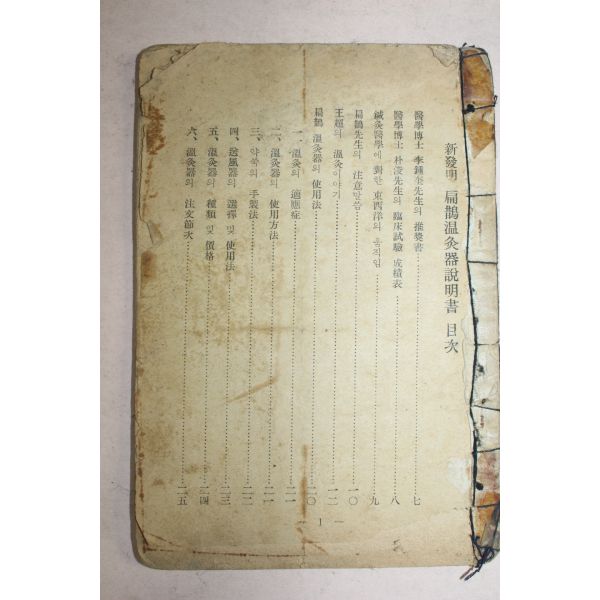 新發明 扁鵲温灸器說明書 目次
醫學博士 李鍾奎先生의 推奬書 七
醫學博士 朴淩先生의 臨床試驗 成績表 八
鍼灸醫學에 對한 東西洋의 움직임 九
扁鵲先生의 注意말씀 一〇
王超의 溫灸이야기 一二
扁鵲 溫灸器의 使用法 二〇
一、溫灸의 適應症 二一
二、溫灸器의 使用方法 二一
三、약쑥의 手製法 二二
四、送風器의 選擇 및 使用法 二三
五、溫灸器의 種類 및 價格 二四
六、溫灸器의 注文節次 二五
— 1 —